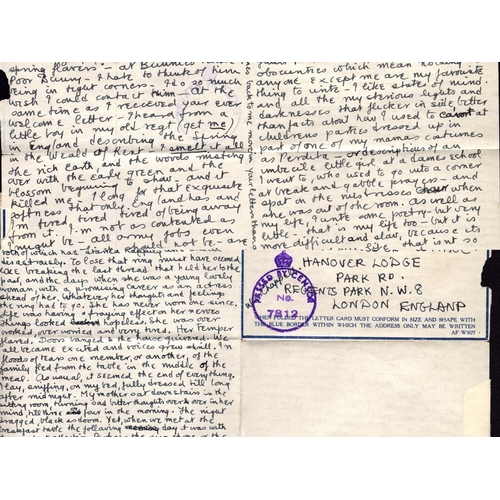 spring flowers" - at
Poor Bunny - I hate to think of him
being in tight corners - I do so much
wish I could contact him. At the
same time as I received your ever
welcome letter I heard from a
little boy in my old regt (get me)
in England describing the Spring
in the Weald of Kent - I smelt it all
the rich earth and the woods misting
over with the early green and the
blossom beginning to show, and it
killed me. I long for that exquisite
softness that only England has and
I'm tired, tired, tired of being away
from it. I'm not as contented as I
might be - all army jobs even
should not be - are
both of which has
distractedly. To lose that ring must have seemed
like breaking the last thread that held her to the
past, and the days when she was a young lovely
woman with a promising career as an actress
ahead of her. Whatever her thoughts and feelings
the ring had to go. She has never worn one since.
Life was having a fraying effect on her nerves
things looked hopeless, she was over
worked over worried and very tired. Her temper
flared. Doors banged & the house quivered. We
all became excited and voices grew shrill, in
floods of tears one member, or another, of the
family fled from the table in the middle of the
meal. As usual, it seemed the end of everything.
I lay, sniffing, on my bed, fully dressed till long
after midnight. My mother sat downstairs in the
sitting room, turning sad bitter thoughts over & over in her
mind, till three four in the morning. The night
dragged, black as doom. Yet, when we met at the
breakfast table the following day it was with
obscurities which mean nothing to
anyone except me are my favourite
thing to write - I like a story by mind
and all the mysterious lights and
darknesses that flicker in side better
than its about how I used to at
childrens parties dressed up in
part of one of my mamas costumes
as Perdita - or description of an
imbecile little girl at a dames school
I went to, who used to go into a corner
at break and gobble prayers - and
spat on the nuns dresses when
she was out of the room. as well as
my life, I write some poetry - but very
little - that is my life too - but it is
more difficult and slow, because its
that isn't so
back to me
your letters
HANOVER LODGE
PARK RD.
REGENTS PARK N.W.8
LONDON ENGLAND
PASSED BY CENSOR
NO.
7819
THE LETTER CARD MUST CONFORM IN SIZE AND SHAPE WITH
THE BLUE BORDER WITHIN WHICH THE ADDRESS ONLY MAY BE WRITTEN